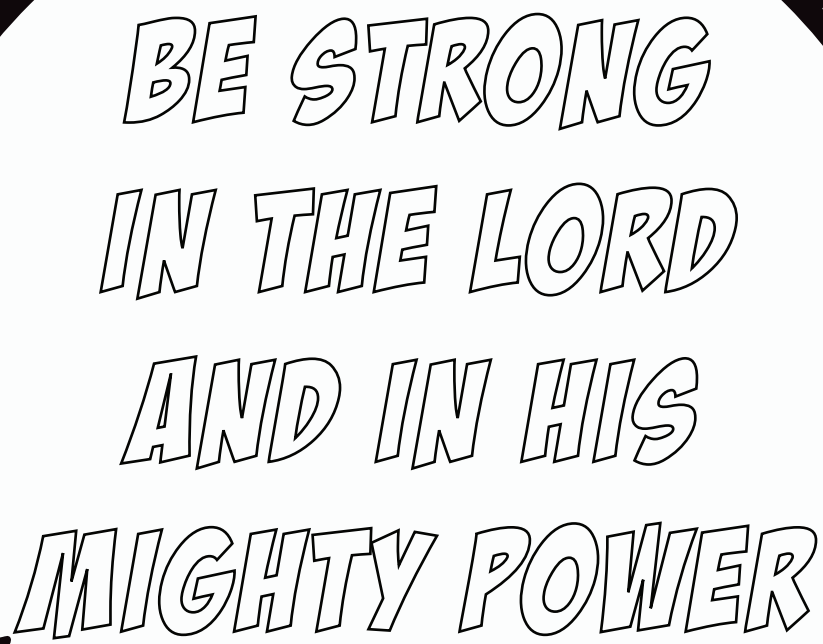 BE STRONG
IN THE LORD
AND IN HIS
MIGHTY POWER